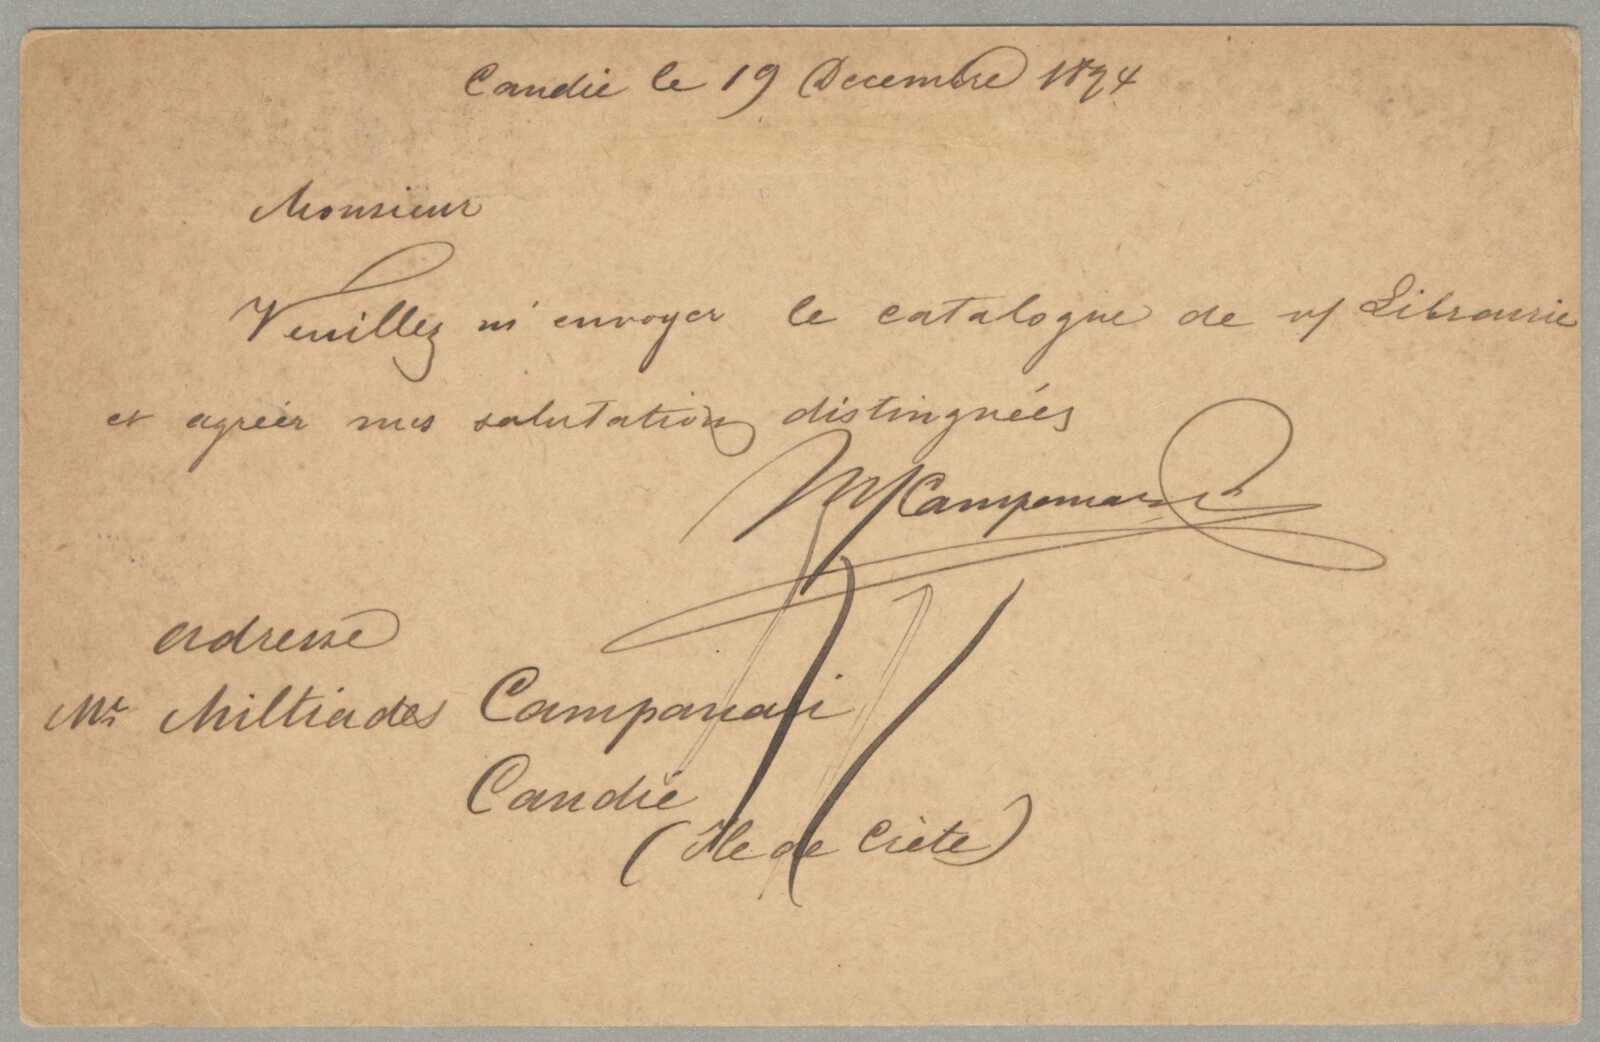 Candie le 19 Decembre 1894
Monsieur
Veuillez m'envoyer le catalogue de v/ Librairie
et agréer mes salutations distinguées
Adresse
Mr Miltiades Campanari
Candie
(Ile de Crète)